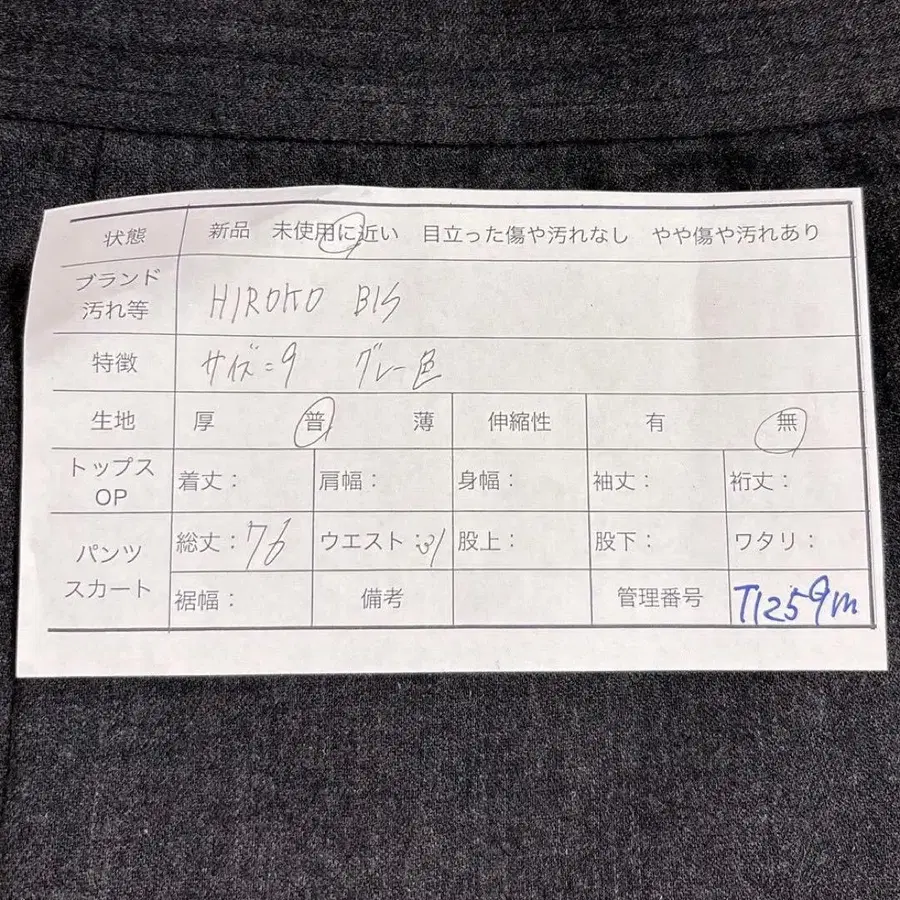 状態 新品 未使用に近い 目立った傷や汚れなし やや傷や汚れあり
ブランド
汚れ等 HIROKO BIS
特徴 サイズ=9 グレー色
生地 厚 普 薄 伸縮性 有 無
トップス
OP 着丈： 肩幅： 身幅： 袖丈： 裄丈：
パンツ
スカート
総丈：76 ウエスト：31 股上： 股下： ワタリ：
裾幅： 備考 管理番号 T1259m